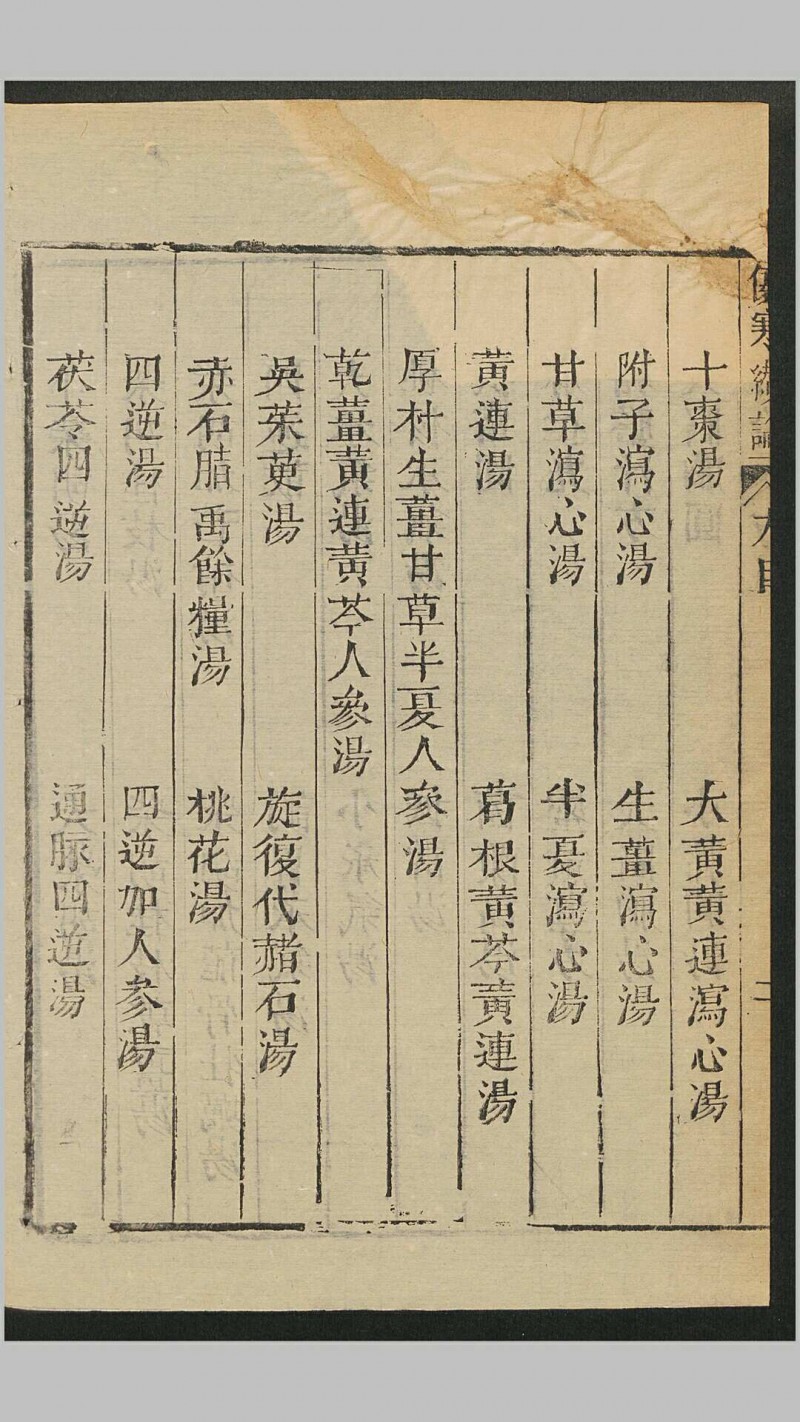 傷寒纘論 目 二
十棗湯 大黃黃連瀉心湯
附子瀉心湯 生薑瀉心湯
甘草瀉心湯 半夏瀉心湯
黃連湯 葛根黃芩黃連湯
厚朴生薑甘草半夏人參湯
乾薑黃連黃芩人參湯
吳茱萸湯 旋復代赭石湯
赤石脂禹餘糧湯 桃花湯
四逆湯 四逆加人參湯
茯苓四逆湯 通脈四逆湯